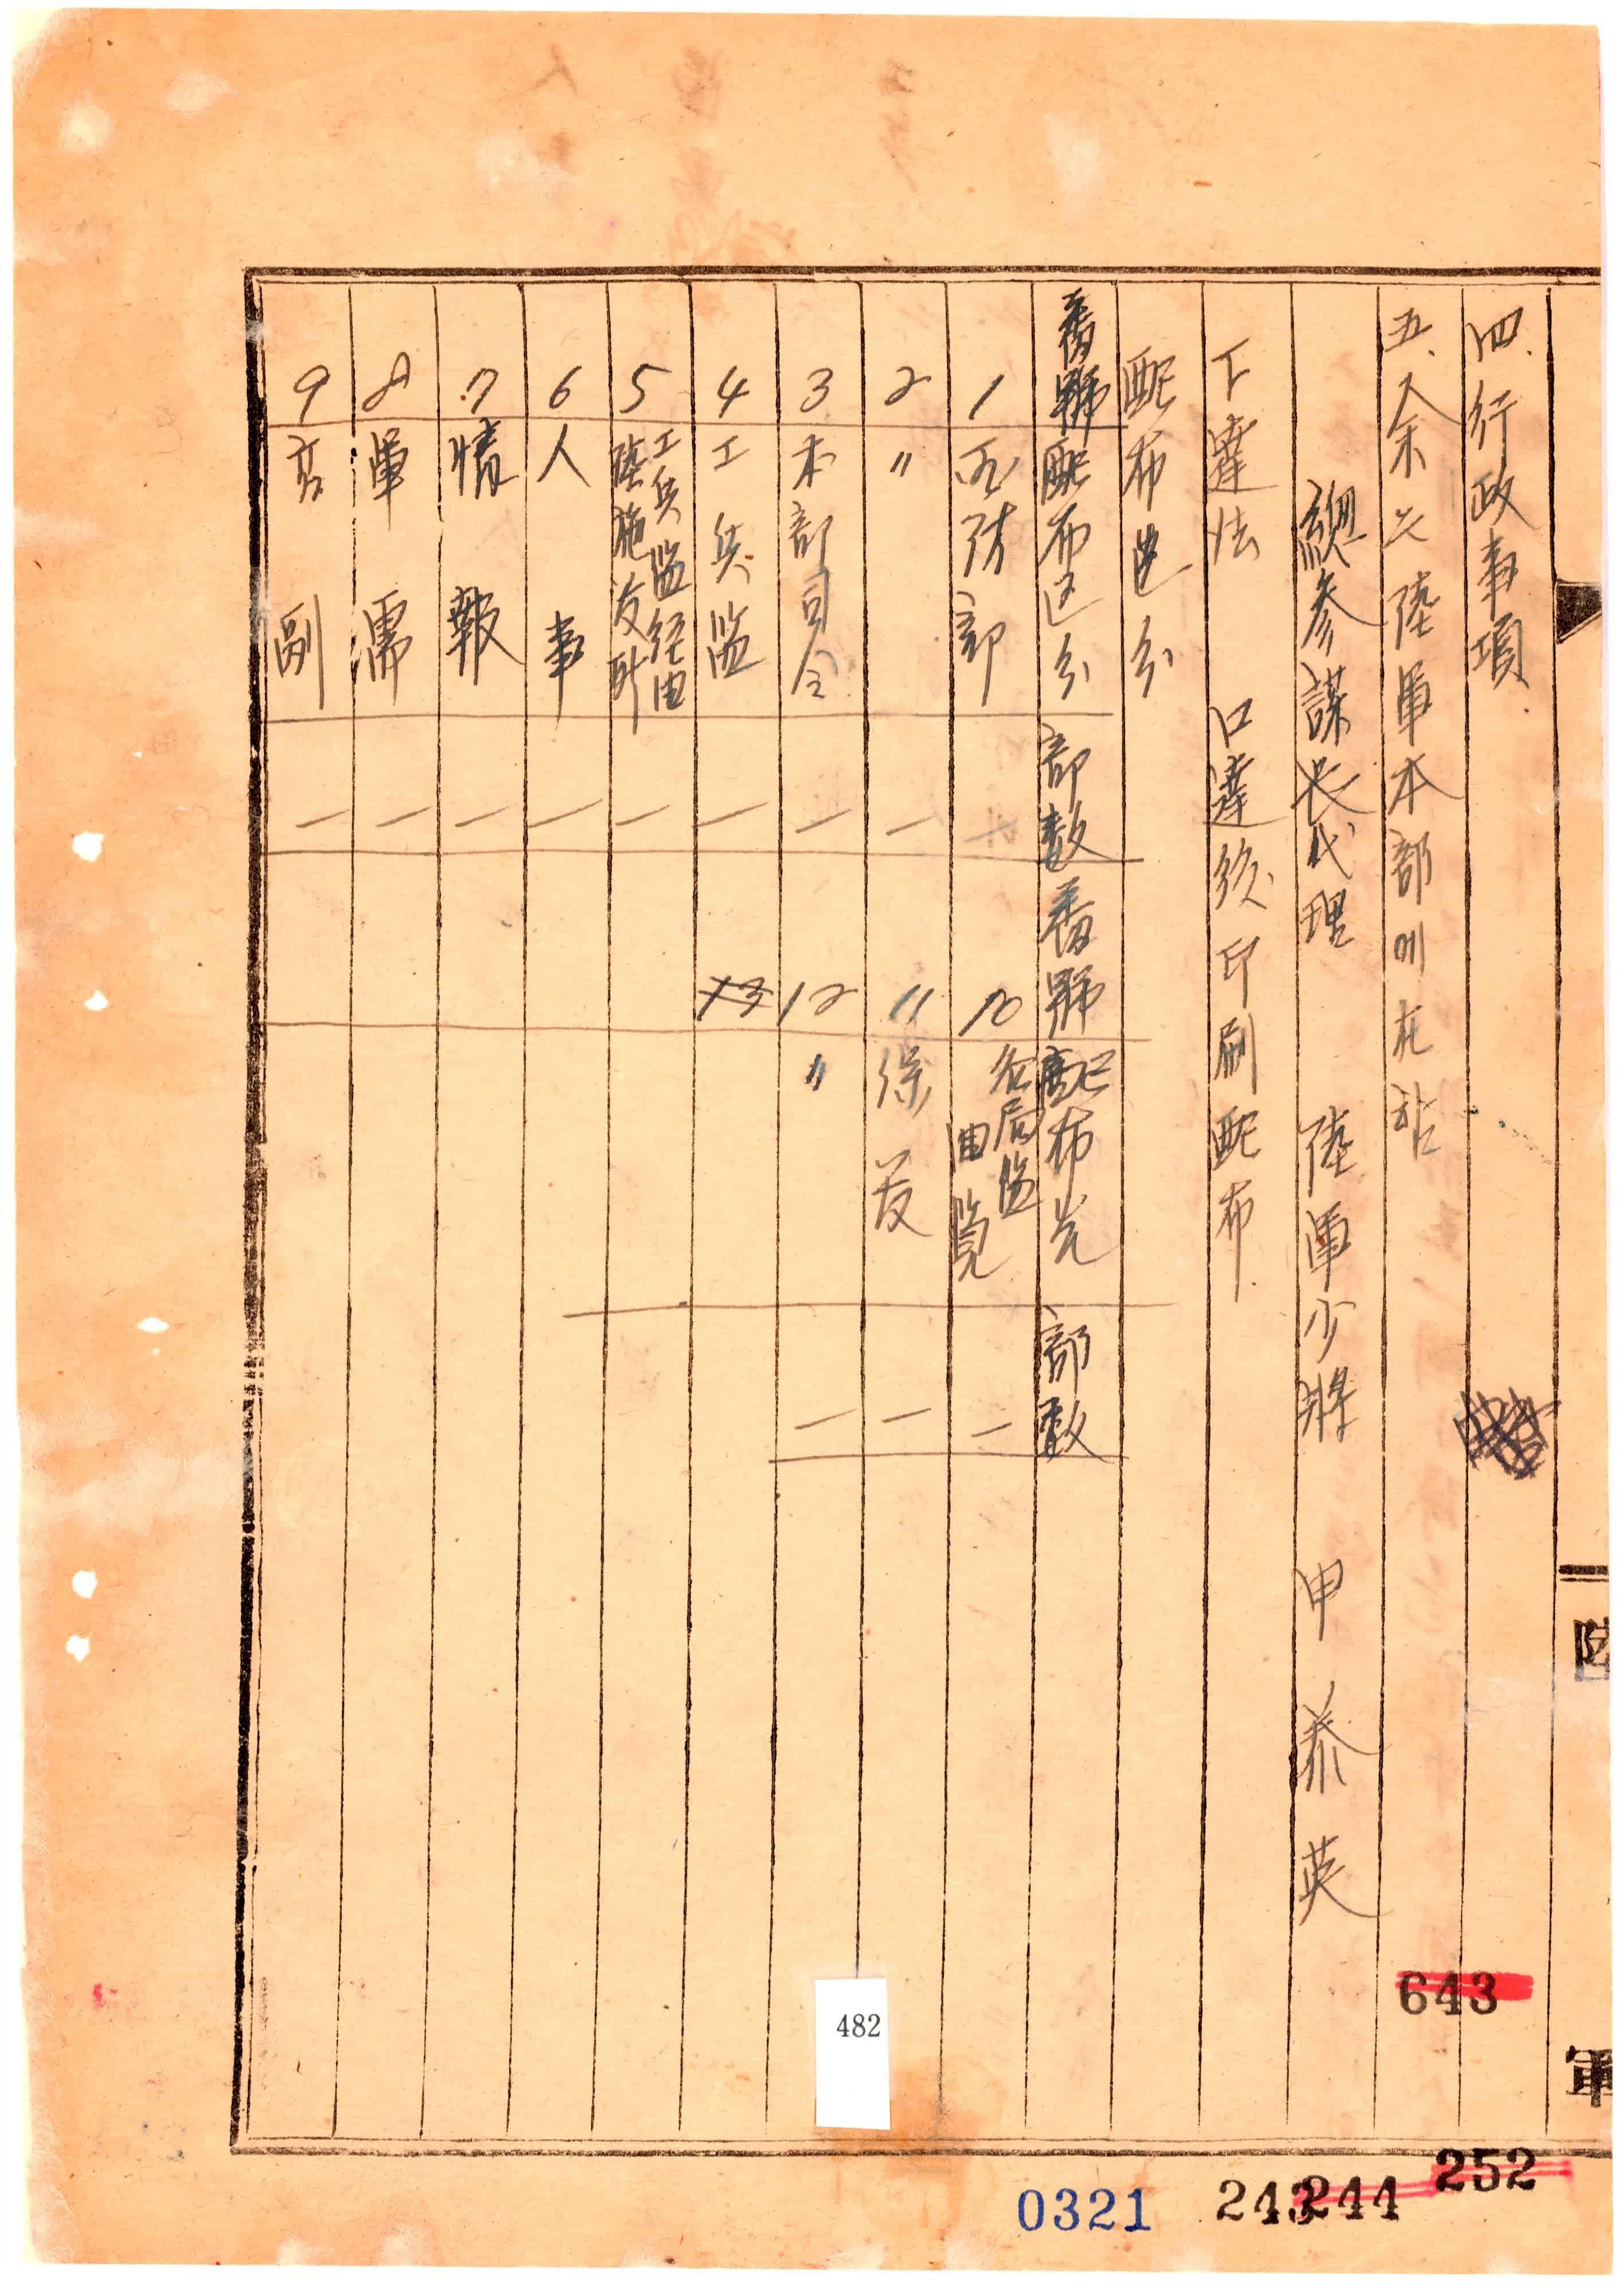 四. 行政事項.
五、余는 陸軍本部에 在함
總參謀長代理 陸軍少將 申泰英
下達法 口達後印刷配布.
配布區分
番號 配布区分 部数 番號 配布先 部数
1 국防部 一 10 各局監 由覧 一
2 〃 一 11 綴 一
3 本部司令 一 12 〃 一
4 工兵監 一 13
5 工兵監経由 陸施发所 一
6 人事 一
7 情報 一
8 軍需 一
9 高副 一
陸
軍
643
482
252
243 244
0321